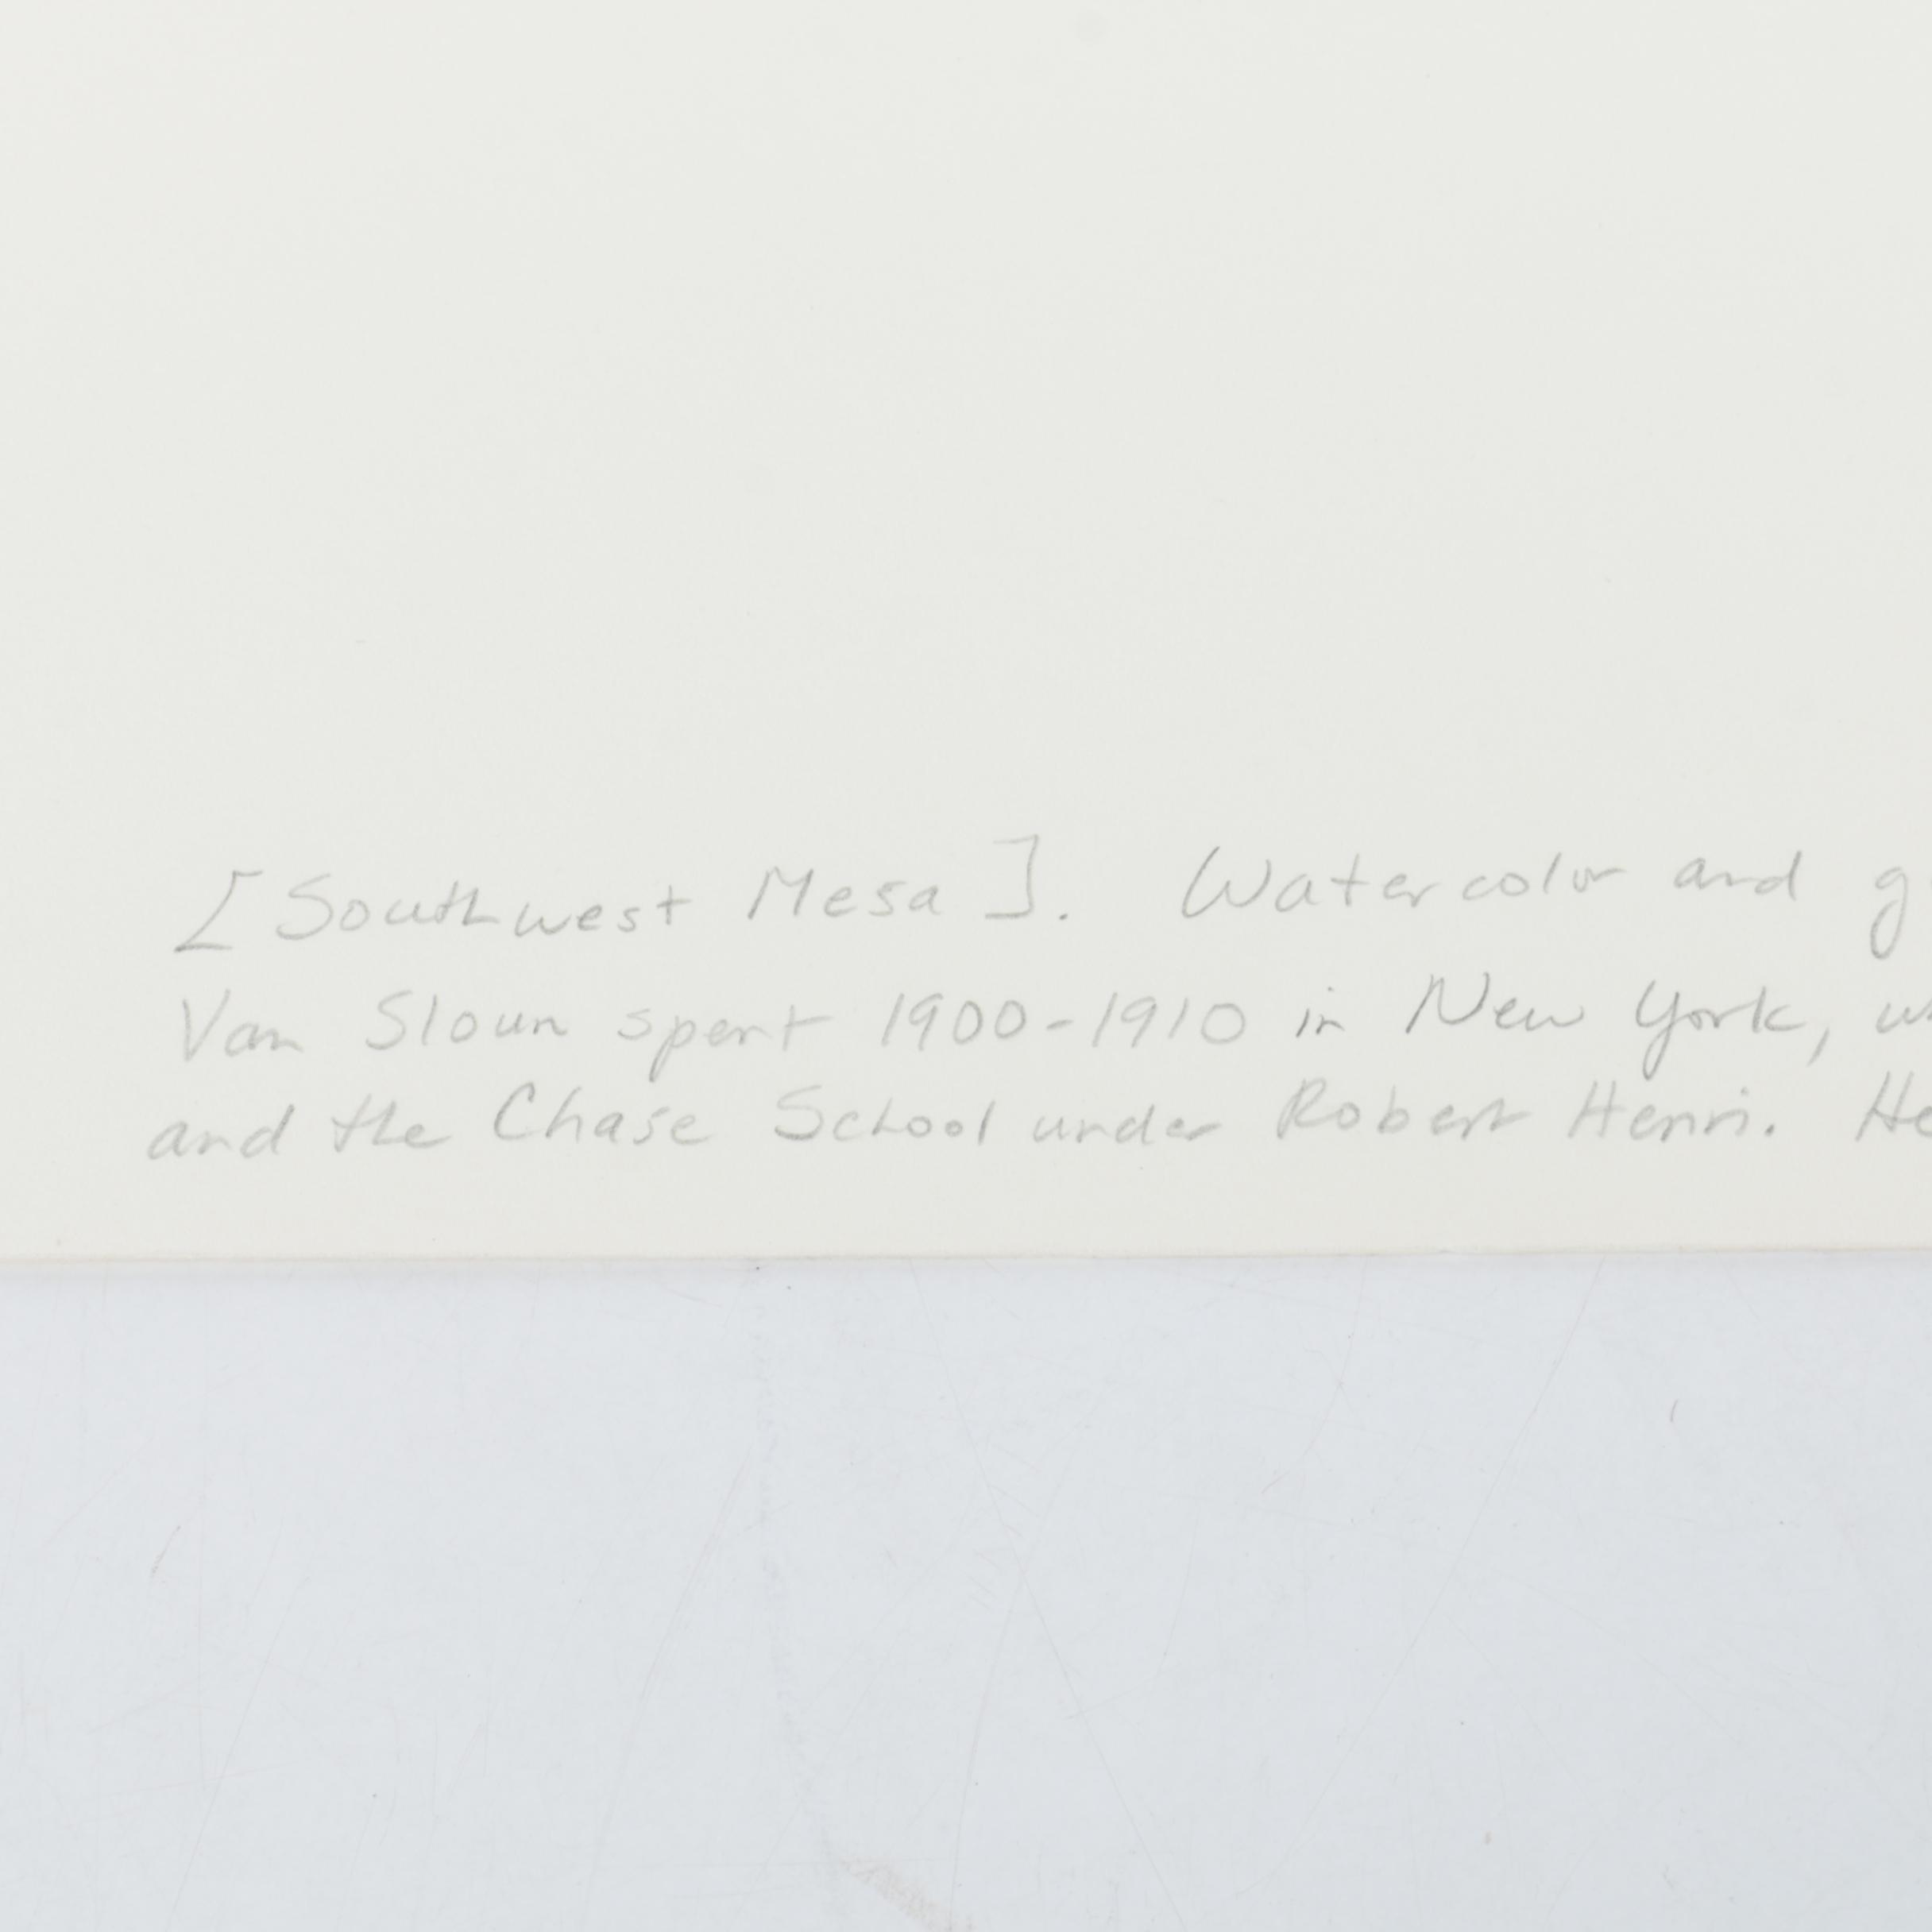 [Southwest Mesa]. Watercolor and
Van Sloun spent 1900-1910 in New York,
and the Chase School under Robert Henri. He